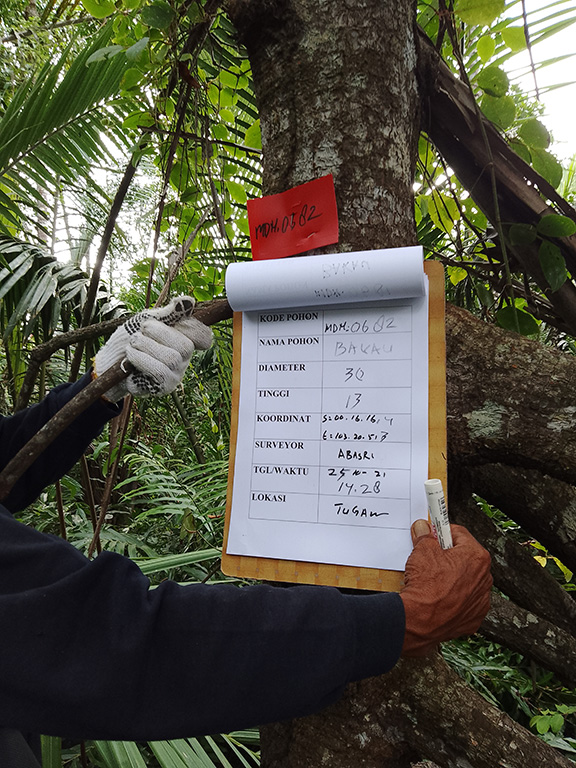 MDM.0682
KODE POHON MDM.0682
NAMA POHON BAKAU
DIAMETER 30
TINGGI 13
KOORDINAT S=00.16.16,4
E=103.20.51,3
SURVEYOR ABASRI
TGL/WAKTU 25 10-21
14.28
LOKASI TUGAW